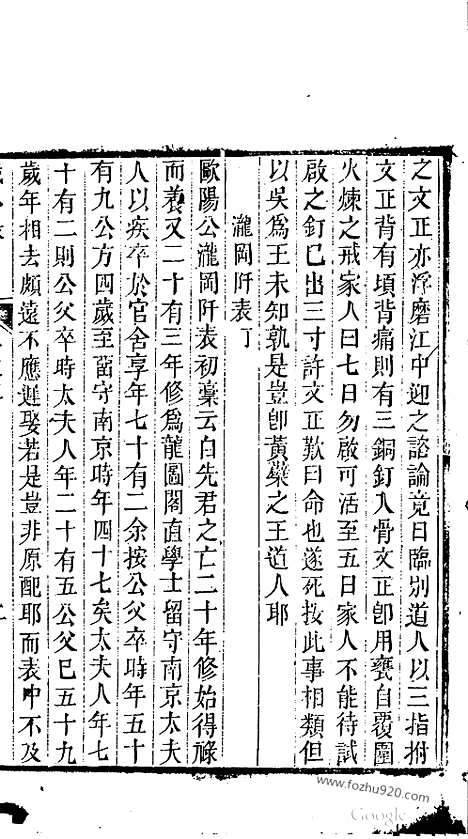 之文正亦浮磨江中迎之談論竟日臨別道人以三指拊
文正背有頃背痛則有三銅釘入骨文正卽用甕自覆圍
火煉之戒家人曰七日勿啟可活至五日家人不能待試
啟之釘已出三寸許文正歎曰命也遂死按此事相類但
以吳爲王未知孰是豈卽黃蘗之王道人耶
瀧岡阡表
歐陽公瀧岡阡表初藁云自先君之亡二十年修始得祿
而養又二十有三年修爲龍圖閣直學士留守南京太夫
人以疾卒於官舍享年七十有二余按公父卒時年五十
有九公方四歲至留守南京時年四十七矣太夫人年七
十有二則公父卒時太夫人年二十有五公父已五十九
歲年相去頗遠不應遲娶若是豈非原配耶而表中不及
www.fozhu920.com
Google